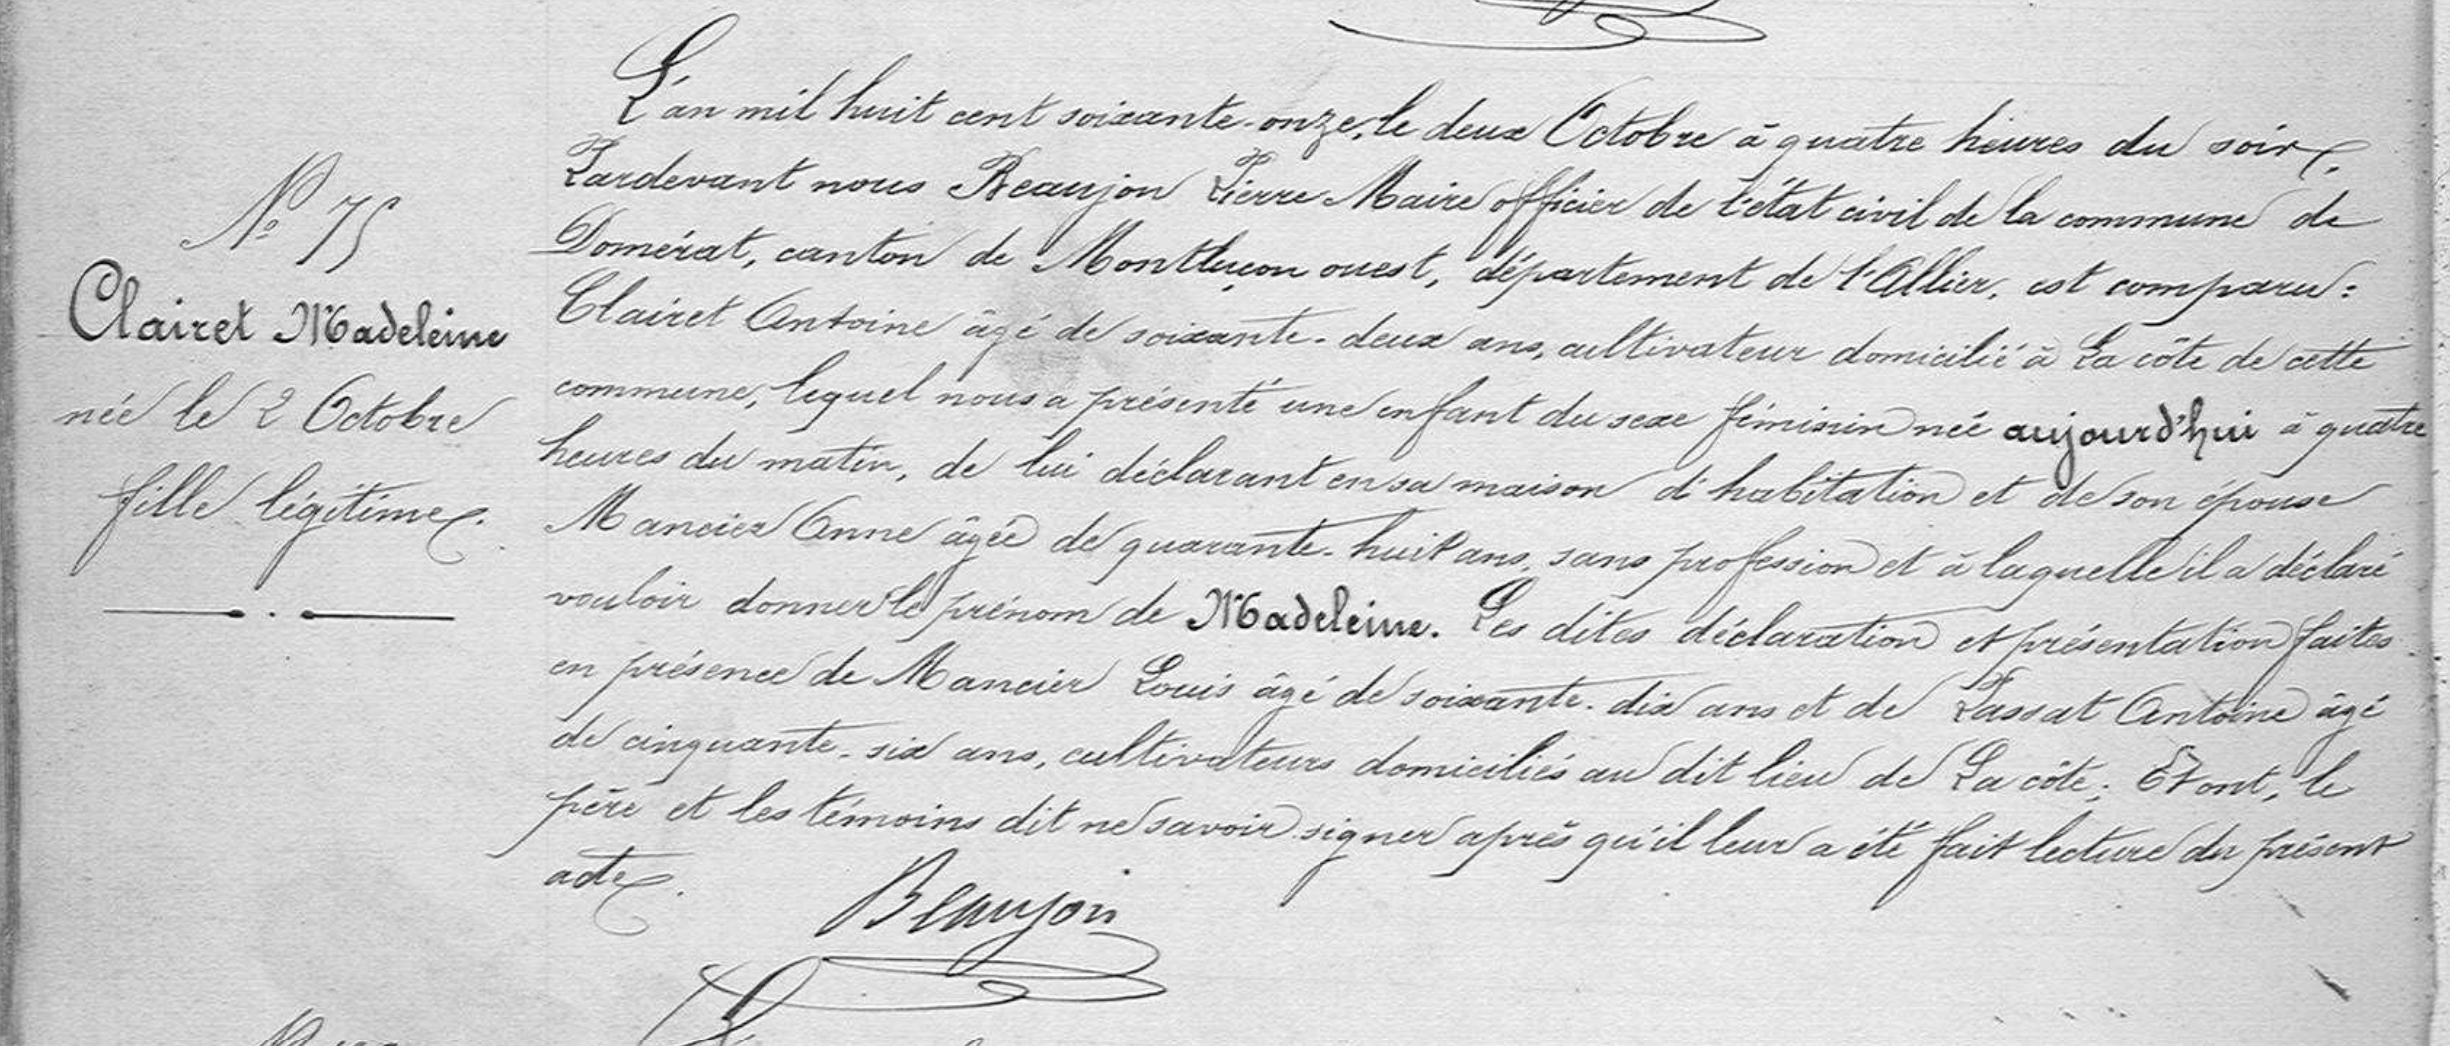 N° 75
Clairet Madeleine
née le 2 Octobre
fille légitime.
L'an mil huit cent soixante-onze, le deux Octobre à quatre heures du soir,
Pardevant nous Beaujon Pierre Maire officier de l'état civil de la commune de
Domérat, canton de Montluçon ouest, département de l'Allier, est comparu:
Clairet Antoine âgé de soixante-deux ans, cultivateur domicilié à La côte de cette
commune, lequel nous a présenté une enfant du sexe féminin née aujourd'hui à quatre
heures du matin, de lui déclarant en sa maison d'habitation et de son épouse
Mancier Anne âgée de quarante-huit ans, sans profession et à laquelle il a déclaré
vouloir donner le prénom de Madeleine. Les dites déclaration et présentation faites
en présence de Mancier Louis âgé de soixante-dix ans et de Passat Antoine âgé
de cinquante-six ans, cultivateurs domiciliés au dit lieu de La côte; Et ont, le
père et les témoins dit ne savoir signer après qu'il leur a été fait lecture du présent
acte.
Beaujon